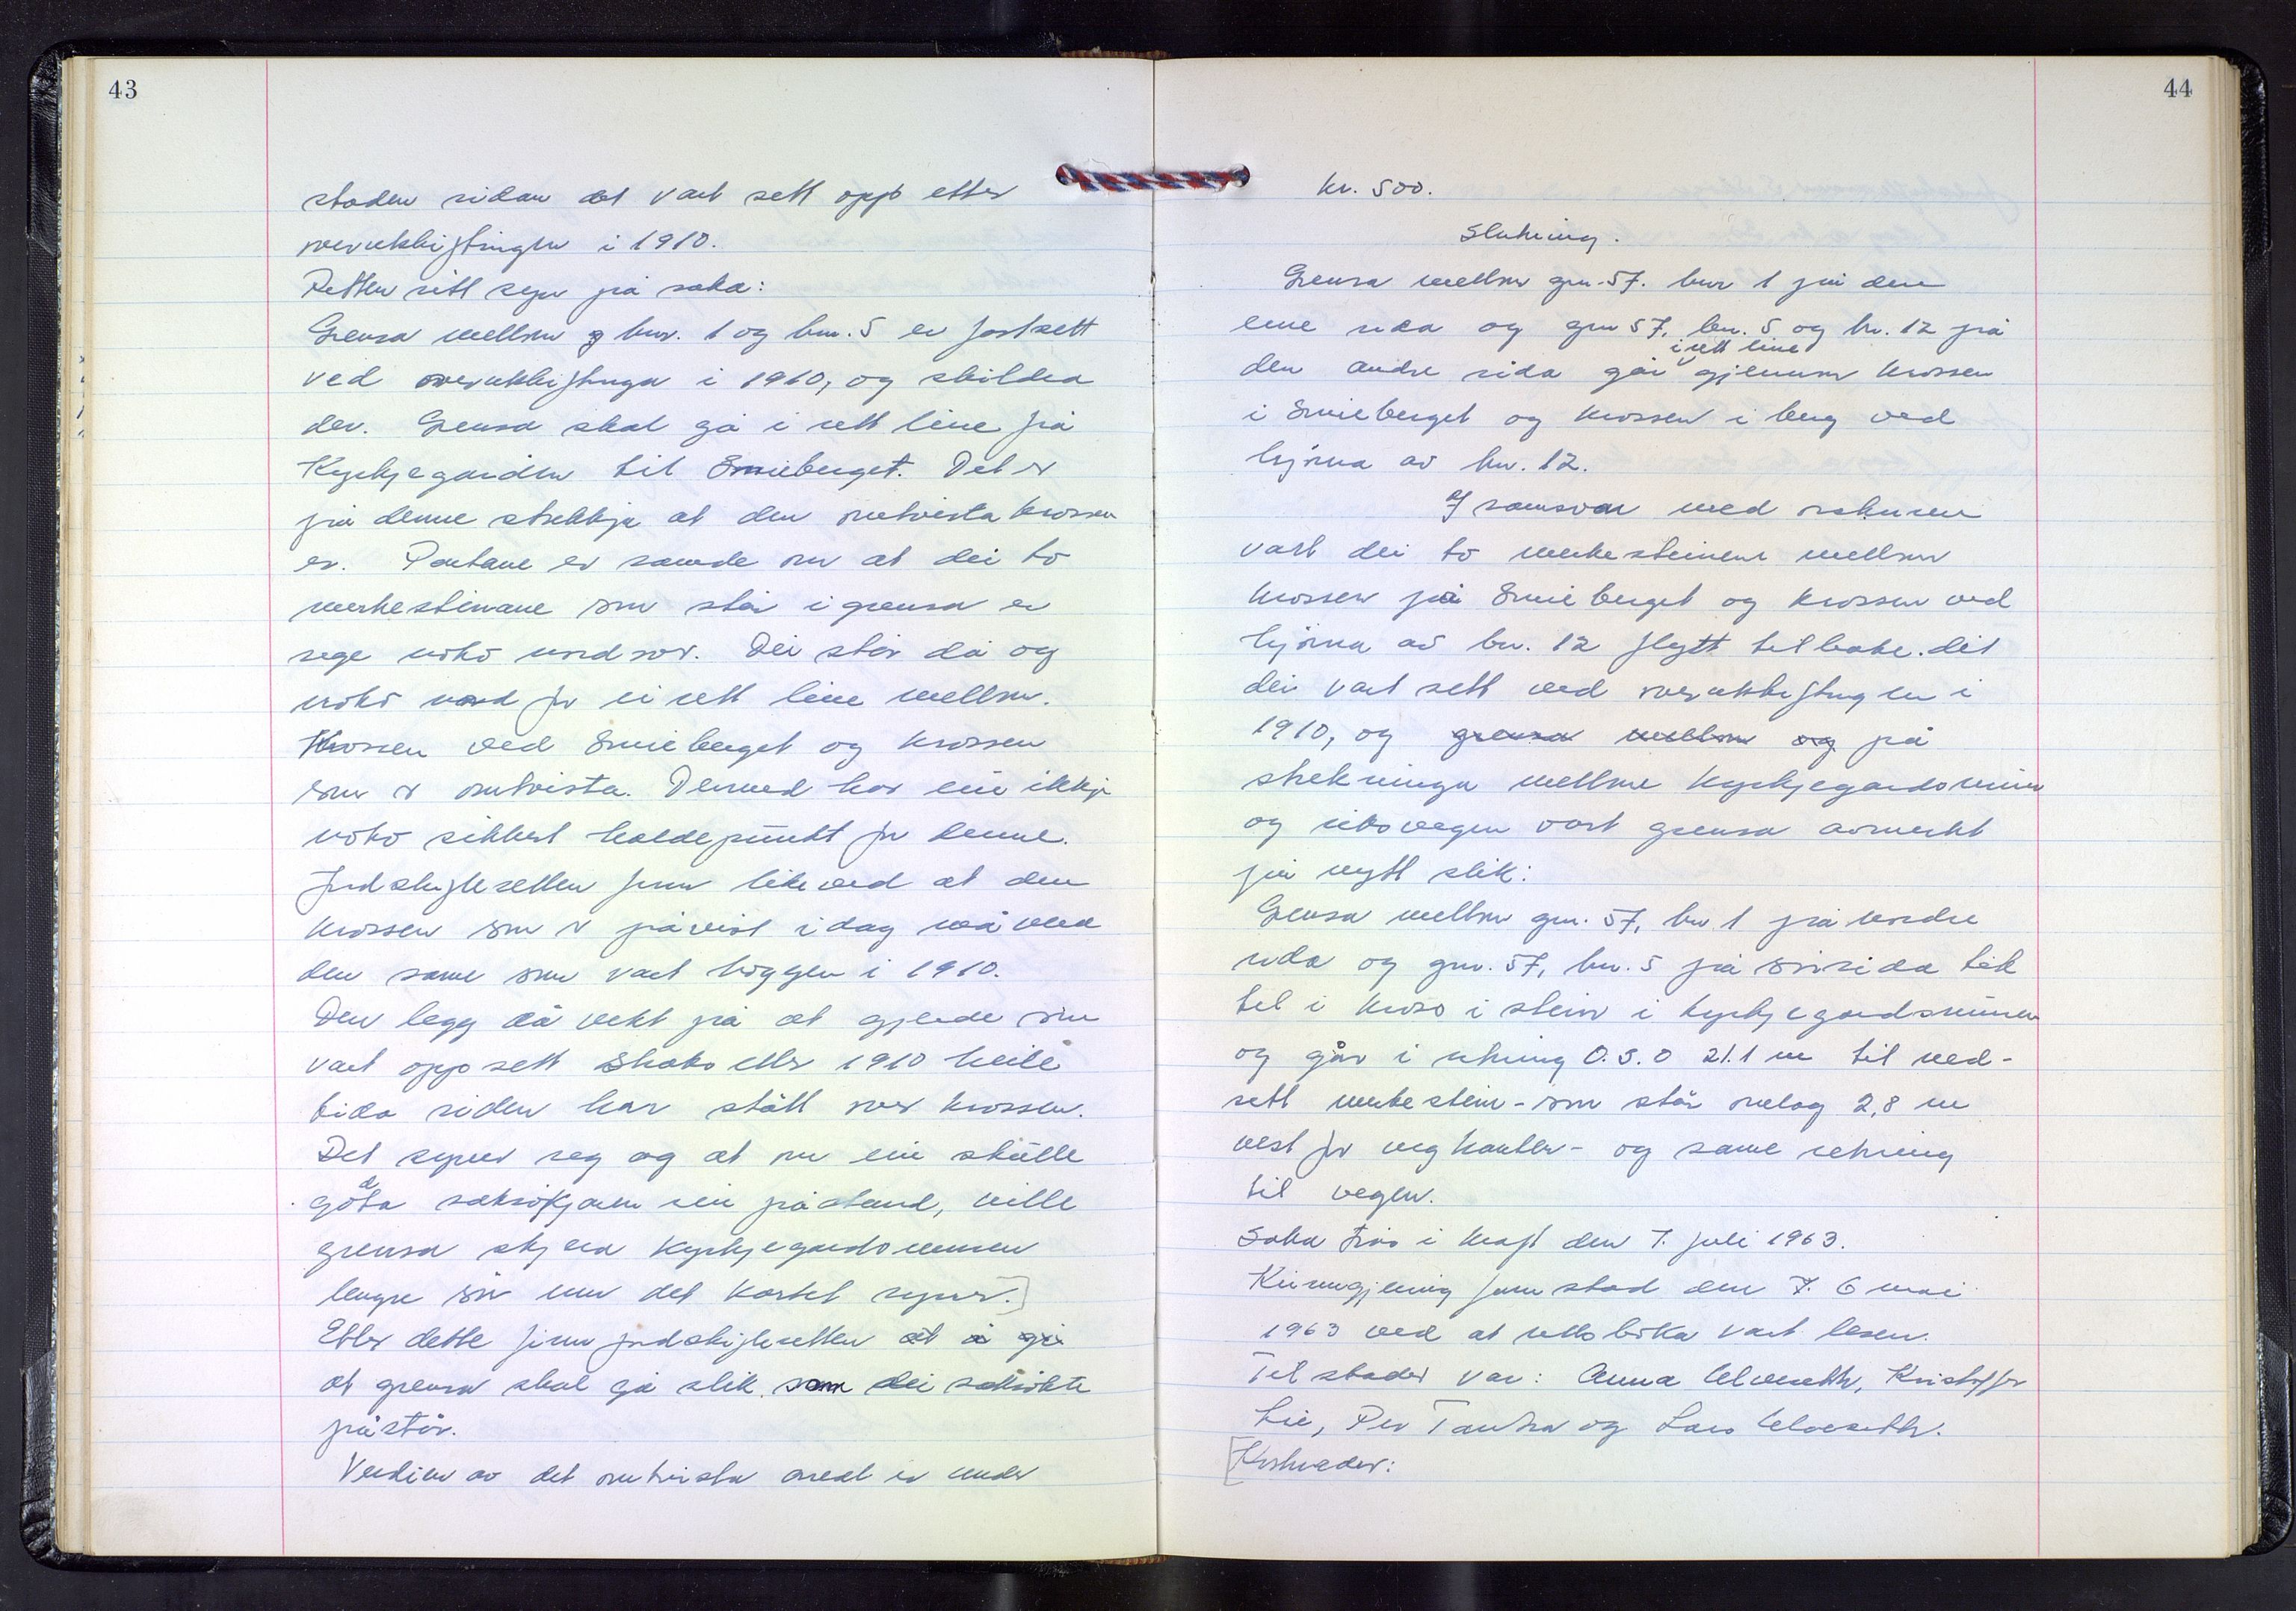 43
staden sidan det vart sett opp etter
overutskiftingen i 1910.
Retten sitt segn på saka:
Grensa mellom g bnr. 1 og bnr. 5 er fastsett
ved overutskiftinga i 1910, og skildra
der. Grensa skal gå i rett line frå
Kyrkjegarden til Smieberget. Det er
på denne strekkja at den omtvista krossen
er. Partane er samde om at dei to
merkesteinane som står i grensa er
sege noko nordover. Dei står då og
noko nord for ei rett line mellom
Krossen ved Smieberget og krossen
som er omtvista. Dermed har ein ikkje
noko sikkert haldepunkt for denne.
Jordskifteretten finn likevel at den
krossen som er påvist i dag må vera
den same som vart hoggen i 1910.
Den legg då vekt på at gjerde som
vart oppsett straks etter 1910 heile
tida siden har stått over krossen.
Det syner seg og at om ein skulle
godta saksøkjaren sin påstand, ville
grensa skjera kyrkjegardsmuren
lengre sør enn det kartet syner.]
Etter dette finn jordskifteretten at å gå
at grensa skal gå slik som dei saksøkte
påstår.
Verdien av det omtvista areal er under
44
kr. 500.
Slutning.
Grensa mellom gnr. 57. bnr 1 på den
eine sida og gnr 57, bnr. 5 og bnr. 12 på
den andre sida går i rett line gjennom krossen
i Smieberget og krossen i berg ved
hjørna av bnr. 12.
I samsvar med orskurden
vart dei to merkesteinene mellom
krossen på Smieberget og krossen ved
hjørna av bnr. 12 flytt tilbake dit
dei vart sett ved overutskiftingen i
1910, og grensa mellom og på
strekninga mellom kyrkjegardsmuren
og riksvegen vart grensa avmerkt
på nytt slik:
Grensa mellom gnr. 57, bnr. 1 på nordre
sida og gnr. 57, bnr. 5 på sørsida tek
til i kross i stein i kyrkjegardsmuren
og går i retning O.S.O 21.1 m til ned-
sett merkestein - som står omlag 2,8 m
vest for vegkanten - og same retning
til vegen.
Saka trer i kraft den 7. juli 1963.
Kunngjering fann stad den 7. 6 mai
1963 ved at rettsboka vart lesen.
Til stader var: Anna Alvseth, Kristoffer
Lie, Per Tautra og Lars Alvseth.
[Kostnader: